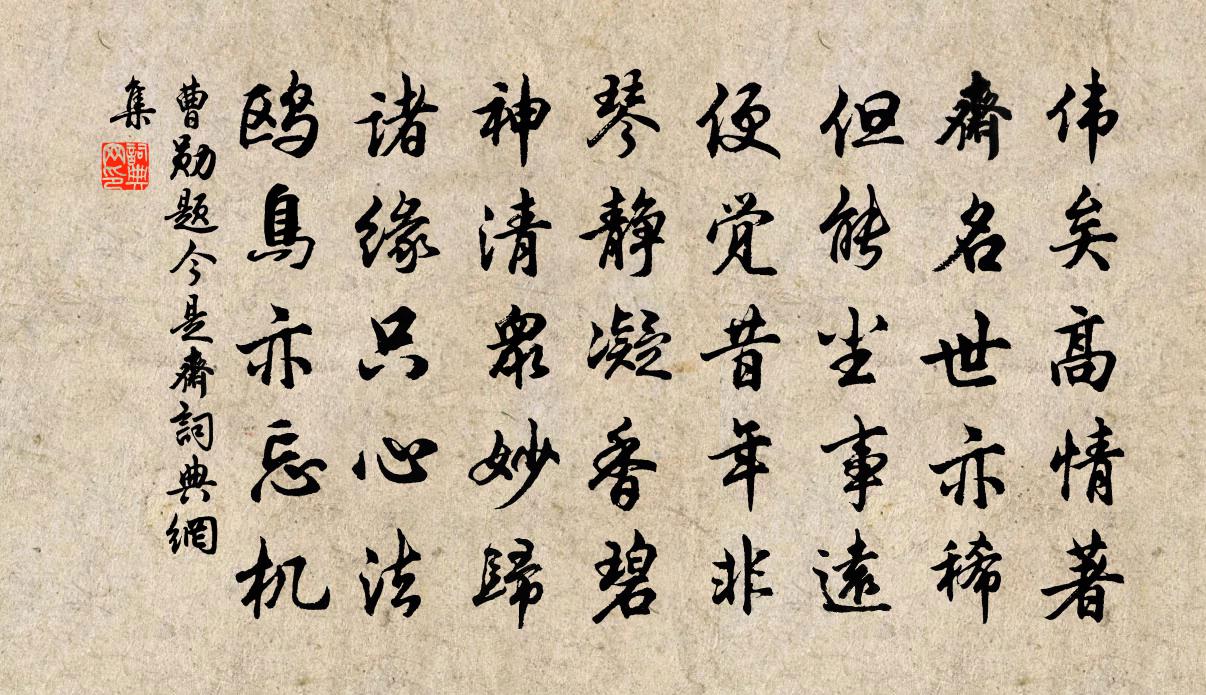 伟矣高情著
齋名世亦稀
但能尘事遠
便觉昔年非
琴静凝香碧
神清眾妙歸
诸缘只心法
鸥鳥亦忘机
曹勛题今是齋詞典網
集
詞典
网印